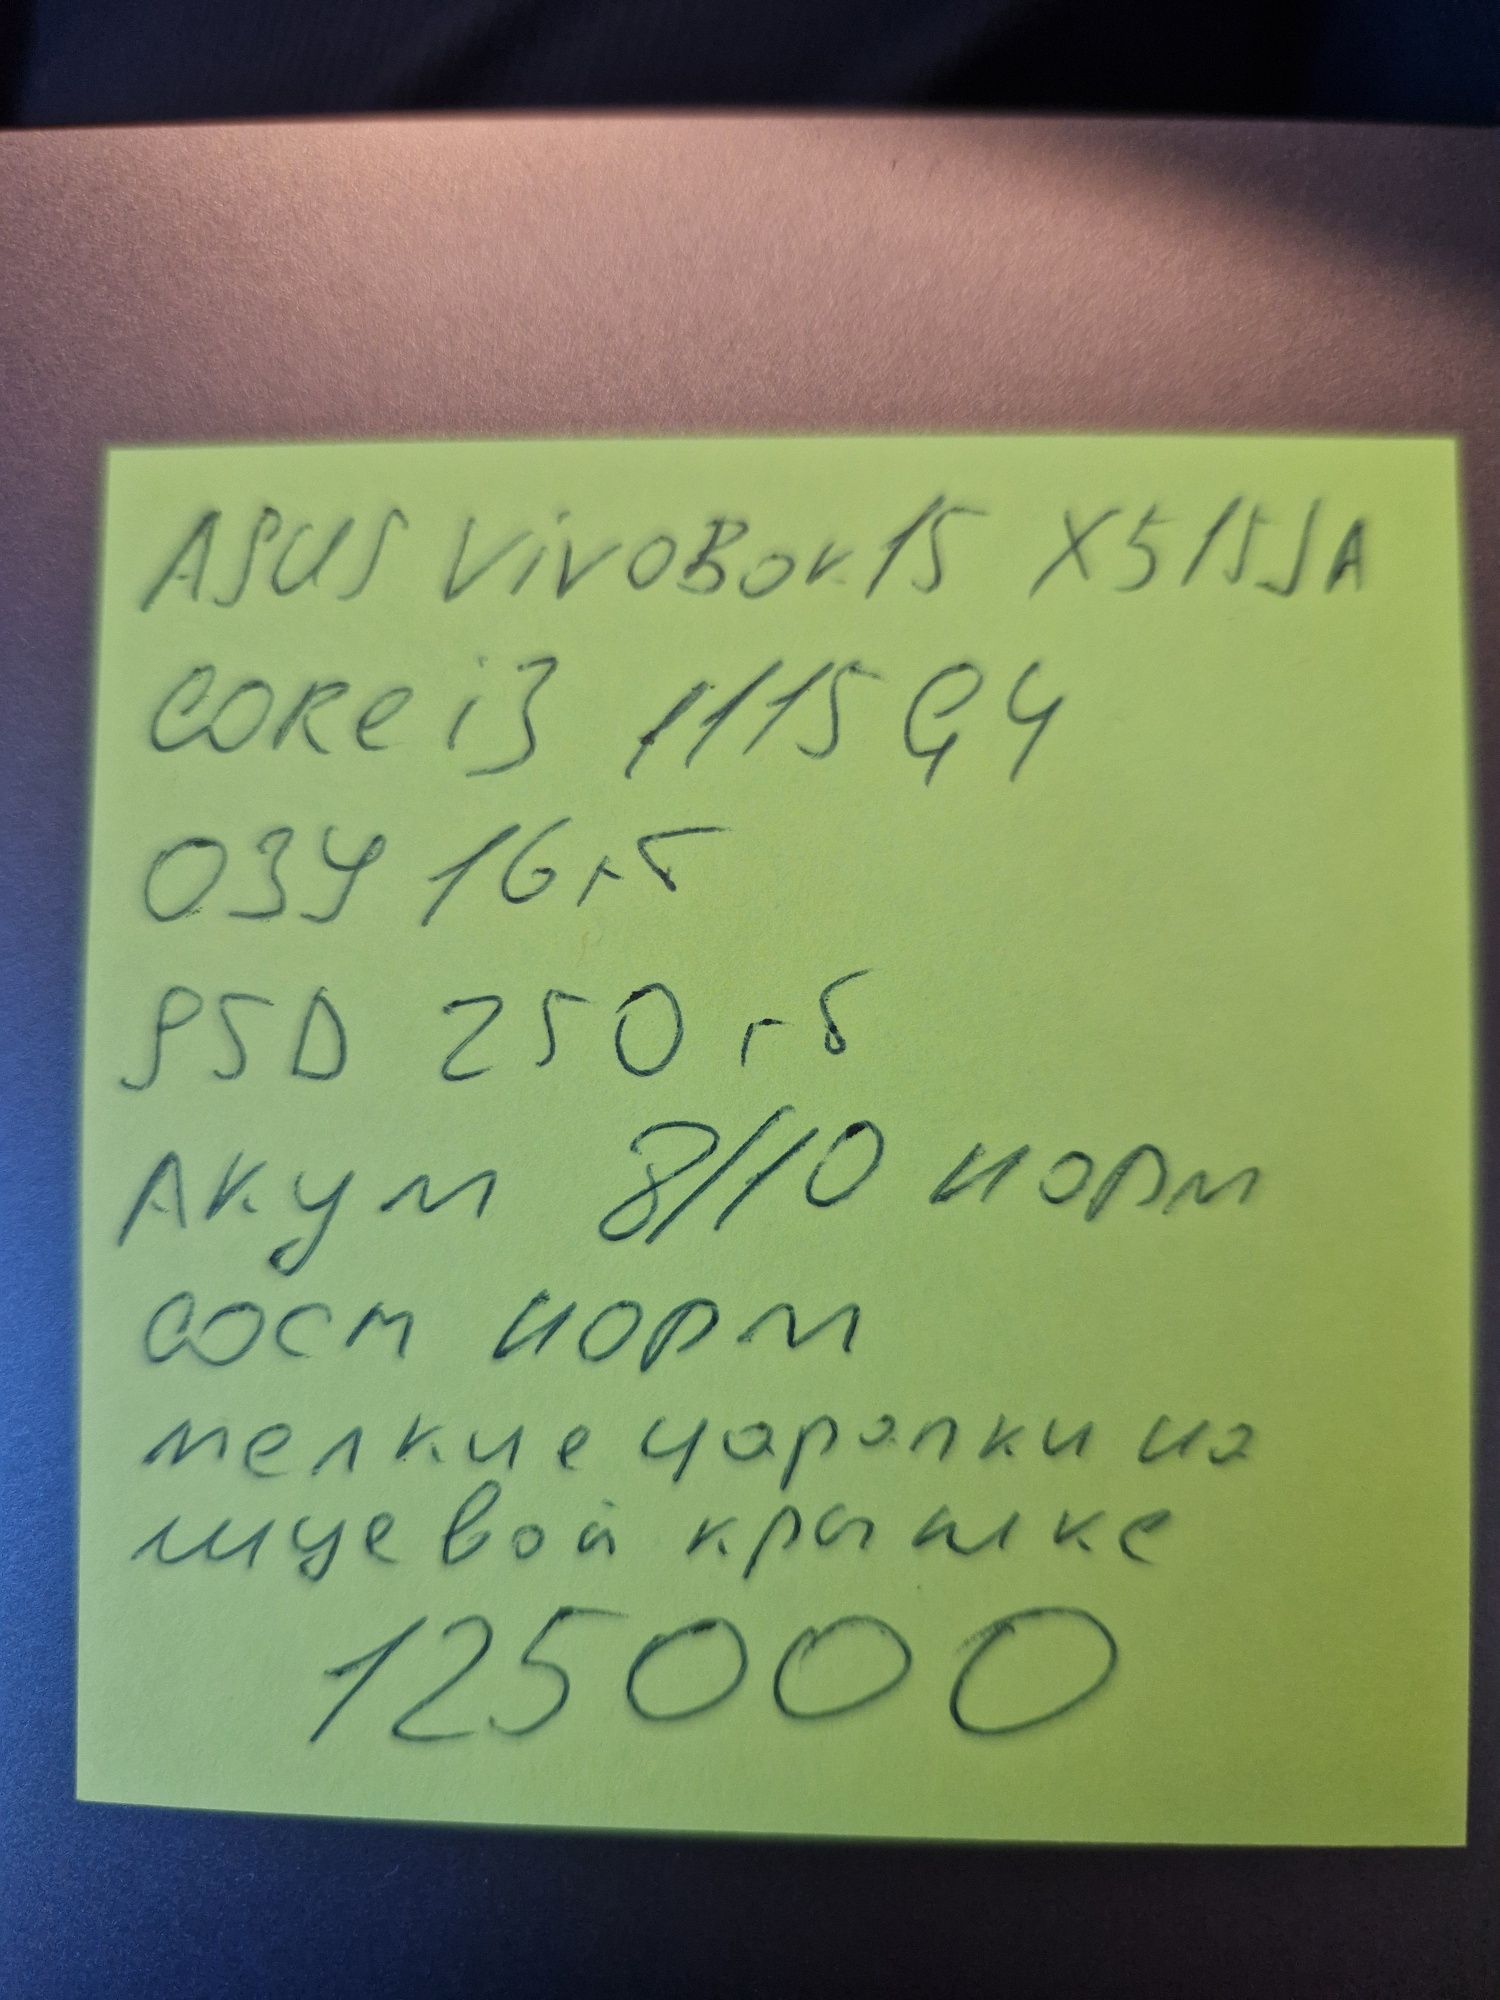 ASUS VivoBook 15 X515JA
CORe i3 1115G4
ОЗУ 16 гб
SSD 250 гб
Акум 8/10 норм
сост норм
мелкие царапки на
лицевой крышке
125000